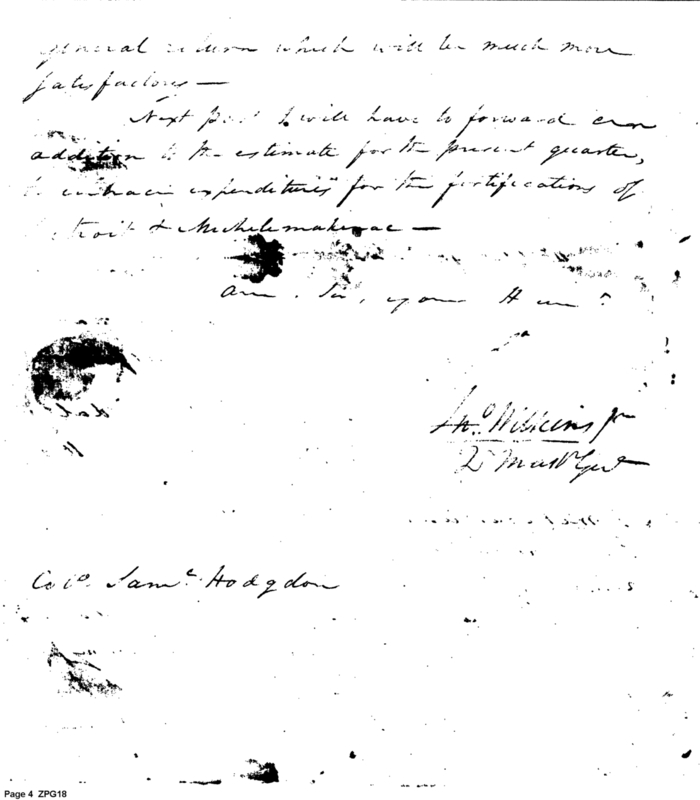 general return which will be much more
satisfactory —
Next post I will have to forward an
addition to the estimate for the present quarter,
to embrace expenditures for the fortifications of
Detroit & Michelemakinac —
am, Sir, your Hum
Jnº Wilkins Jr
Q Mastr Genl
Colº. Saml Hodgdon
Page 4 ZPG18